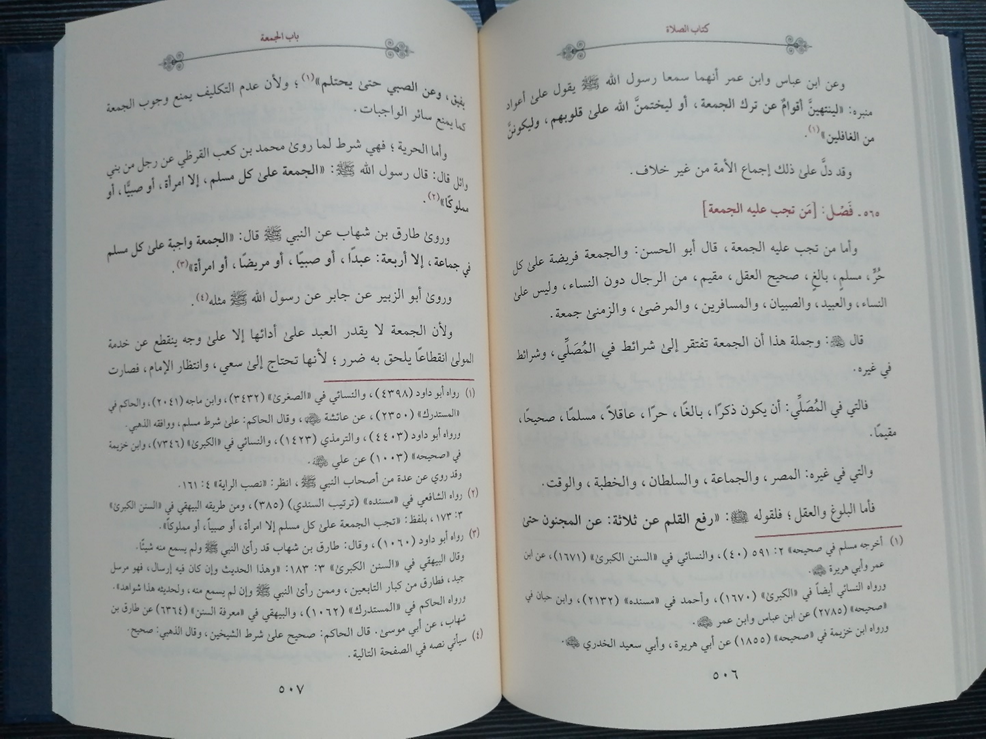 كتاب الصلاة
وعن ابن عباس وابن عمر أنهما سمعا رسول الله ﷺ يقول علىٰ أعواد
منبره: «لينتهينَّ أقوامٌ عن ترك الجمعة، أو ليختمنَّ الله علىٰ قلوبهم، وليكوننَّ
من الغافلين»(١).
وقد دلَّ علىٰ ذلك إجماع الأمة من غير خلاف.
٥٦٥ - فَصْل: [مَن تجب عليه الجمعة]
وأما من تجب عليه الجمعة، قال أبو الحسن: والجمعة فريضة علىٰ كل
حُرٍّ، مسلمٍ، بالغٍ، صحيح العقل، مقيم، من الرجال دون النساء، وليس علىٰ
النساء، والعبيد، والصبيان، والمسافرين، والمرضىٰ، والزمنىٰ جمعة.
قال ﵀: وجملة هذا أن الجمعة تفتقر إلىٰ شرائط في المُصَلِّي، وشرائط
في غيره.
فالتي في المُصَلِّي: أن يكون ذكرًا، بالغًا، حرًا، عاقلاً، مسلمًا، صحيحًا،
مقيمًا.
والتي في غيره: المصر، والجماعة، والسلطان، والخطبة، والوقت.
فأما البلوغ والعقل؛ فلقوله ﷺ: «رفع القلم عن ثلاثة: عن المجنون حتىٰ
(١) أخرجه مسلم في صحيحه» ٢: ٥٩١ (٤٠)، والنسائي في «السنن الكبرىٰ» (١٦٧١)، عن ابن
عمر وأبي هريرة ﵃.
ورواه النسائي أيضاً في «الكبرىٰ» (١٦٧٠)، وأحمد في «مسنده» (٢١٣٢)، وابن حبان في
«صحيحه» (٢٧٨٥) عن ابن عباس وابن عمر ﵃.
ورواه ابن خزيمة في «صحيحه» (١٨٥٥) عن أبي هريرة، وأبي سعيد الخدري ﵄.
٥٠٦
باب الجمعة
يفيق، وعن الصبي حتىٰ يحتلم»(١)؛ ولأن عدم التكليف يمنع وجوب الجمعة
كما يمنع سائر الواجبات.
وأما الحرية؛ فهي شرط لما روىٰ محمد بن كعب القرظي عن رجل من بني
وائل قال: قال رسول الله ﷺ: «الجمعة علىٰ كل مسلم، إلا امرأة، أو صبيًّا، أو
مملوكًا»(٢).
وروىٰ طارق بن شهاب عن النبي ﷺ قال: «الجمعة واجبة علىٰ كل مسلم
في جماعة، إلا أربعة: عبدًا، أو صبيًا، أو مريضًا، أو امرأة»(٣).
وروىٰ أبو الزبير عن جابر عن رسول الله ﷺ مثله(٤).
ولأن الجمعة لا يقدر العبد علىٰ أدائها إلا علىٰ وجه ينقطع عن خدمة
المولىٰ انقطاعًا يلحق به ضرر؛ لأنها تحتاج إلىٰ سعي، وانتظار الإمام، فصارت
(١) رواه أبو داود (٤٣٩٨)، والنسائي في «الصغرىٰ» (٣٤٣٢)، وابن ماجه (٢٠٤١)، والحاكم في
«المستدرك» (٢٣٥٠)، عن عائشة ﵂، وقال الحاكم: علىٰ شرط مسلم، ووافقه الذهبي.
ورواه أبو داود (٤٤٠٣)، والترمذي (١٤٢٣)، والنسائي في «الكبرىٰ» (٧٣٤٦)، وابن خزيمة
في «صحيحه» (١٠٠٣) عن علي ﵁.
وقد روي عن عدة من أصحاب النبي ﷺ، انظر: «نصب الراية» ٤: ١٦١.
(٢) رواه الشافعي في «مسنده» (ترتيب السندي) (٣٨٥)، ومن طريقه البيهقي في «السنن الكبرىٰ»
٣: ١٧٣، بلفظ: «تجب الجمعة علىٰ كل مسلم إلا امرأة، أو صبياً، أو مملوكاً».
(٣) رواه أبو داود (١٠٦٠)، وقال: طارق بن شهاب قد رأىٰ النبي ﷺ ولم يسمع منه شيئًا.
وقال البيهقي في «السنن الكبرىٰ» ٣: ١٨٣: «وهذا الحديث وإن كان فيه إرسال، فهو مرسل
جيد، فطارق من كبار التابعين، وممن رأىٰ النبي ﷺ وإن لم يسمع منه، ولحديثه هذا شواهد».
ورواه الحاكم في «المستدرك» (١٠٦٢)، والبيهقي في «معرفة السنن» (٦٣٦٤) عن طارق بن
شهاب، عن أبي موسىٰ. قال الحاكم: صحيح علىٰ شرط الشيخين، وقال الذهبي: صحيح.
(٤) سيأتي نصه في الصفحة التالية.
٥٠٧